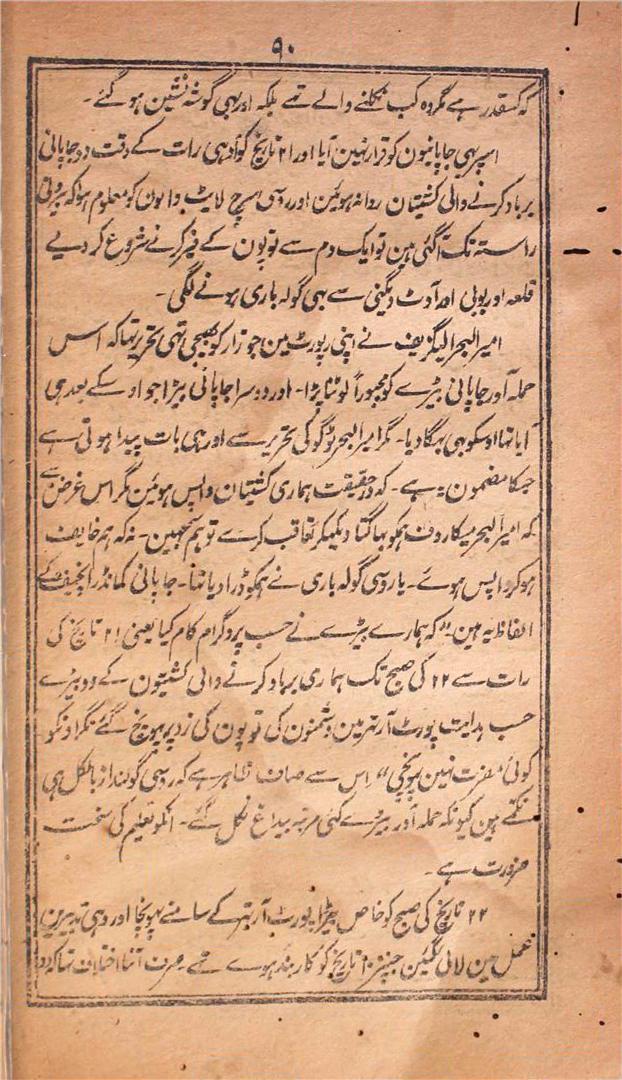 ۹۰
کہ کسقدر ہے مگر وہ کب نکلنے والے تھے بلکہ اور بہی گوشہ نشین ہوگئے۔
اسپر بہی جاپانیون کو قرار نہین آیا اور ۲۱ تاریخ کو آدہی رات کے وقت دو جاپانی
برباد کرنے والی کشتیان روانہ ہوئین اور روسی سرچ لایٹ والون کو معلوم ہوا کہ بیرونی
راستہ تک آگئی ہین تو ایک دم سے توپون کے فیر کرنے شروع کر دیے
قلعہ اور بوبی اور آوٹ دیگنی سے بہی گولہ باری ہونے لگی۔
امیر البحر الیگزیف نے اپنی رپورٹ مین جو زار کو بھیجی تہی تحریر تہا کہ اس
حملہ آور جاپانی بیڑے کو مجبوراً لوٹنا پڑا۔ اور دوسرا جاپانی بیڑا جو اوسکے بعد ہی
آیا تہا اوسکو بہی بہگا دیا۔ مگر امیر البحر ٹوگو کی تحریر سے اور ہی بات پیدا ہوتی ہے
جسکا مضمون یہ ہے۔ کہ درحقیقت ہماری کشتیان واپس ہوئین مگر اس غرض سے
کہ امیر البحر میکاروف ہمکو بہاگتا دیکہکر تعاقب کرے تو ہم سمجہین۔ نہ کہ ہم خایف
ہوکر واپس ہوئے۔ یا روسی گولہ باری نے ہمکو ڈرا دیا تہا۔ جاپانی کمانڈر انچیف کے
الفاظ یہ ہین۔ "کہ ہمارے بیڑے نے حسب پروگرام کام کیا یعنی ۲۱ تاریخ کی
رات سے ۲۲ کی صبح تک ہماری برباد کرنے والی کشتیون کے دو بیڑے
حسب ہدایت پورٹ آرتہر مین دشمنون کی توپون کی زد پر پہونچ گئے مگر اونکو
کوئی مضرت نہین پہونچی" اس سے صاف ظاہر ہے کہ روسی گولنداز بالکل ہی
نکمے ہین کیونکہ حملہ آور بیڑے کئی مرتبہ بیداغ نکل گئے۔ انکو تعلیم کی سخت
ضرورت ہے۔
۲۲ تاریخ کی صبح کو خاص بیڑا پورٹ آرتہر کے سامنے پہونچا اور وہی تدبیرین
عمل مین لائی گئین جنپر ۱۰ تاریخ کو کاربند ہوے تھے۔ صرف اتنا اختلاف تہا کہ دو